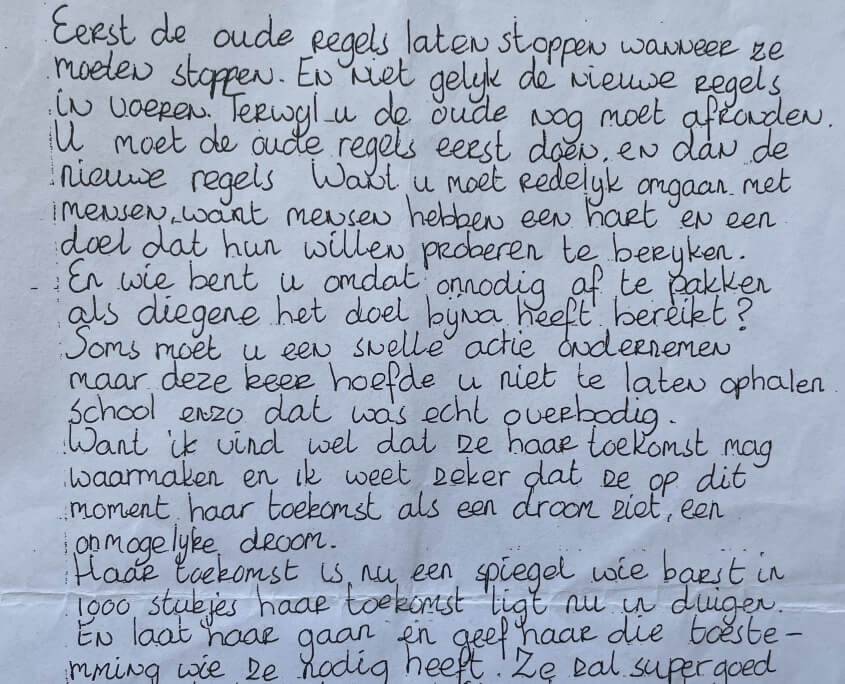 Eerst de oude regels laten stoppen wanneer ze
moeten stoppen. En niet gelyk de nieuwe regels
in voeren. Terwyl u de oude nog moet afronden.
U moet de oude regels eerst doen, en dan de
nieuwe regels Want u moet redelyk omgaan met
mensen, want mensen hebben een hart en een
doel dat hun willen proberen te beryken.
En wie bent u omdat onnodig af te pakken
als diegene het doel byna heeft bereikt?
Soms moet u een snelle actie ondernemen
maar deze keer hoefde u niet te laten ophalen
school enzo dat was echt overbodig.
Want ik vind wel dat ze haar toekomst mag
waarmaken en ik weet zeker dat ze op dit
moment haar toekomst als een droom ziet, een
onmogelyke droom.
Haar toekomst is nu een spiegel wie barst in
1000 stukjes haar toekomst ligt nu in duigen.
En laat haar gaan en geef haar die toeste-
mming wie ze nodig heeft. Ze zal supergoed